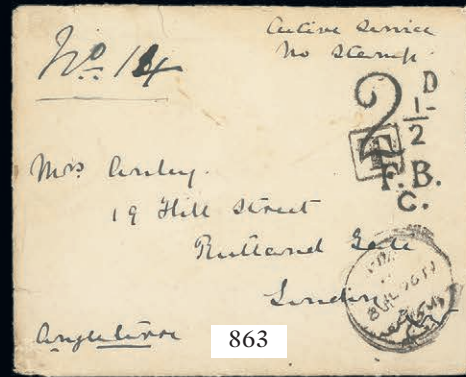 Active Service
No Stamp
No. 14
2 D
1/2
T
F.B.
C.
Mrs Anley.
19 Hill Street
Rutland Gate
London
Angleterre
863